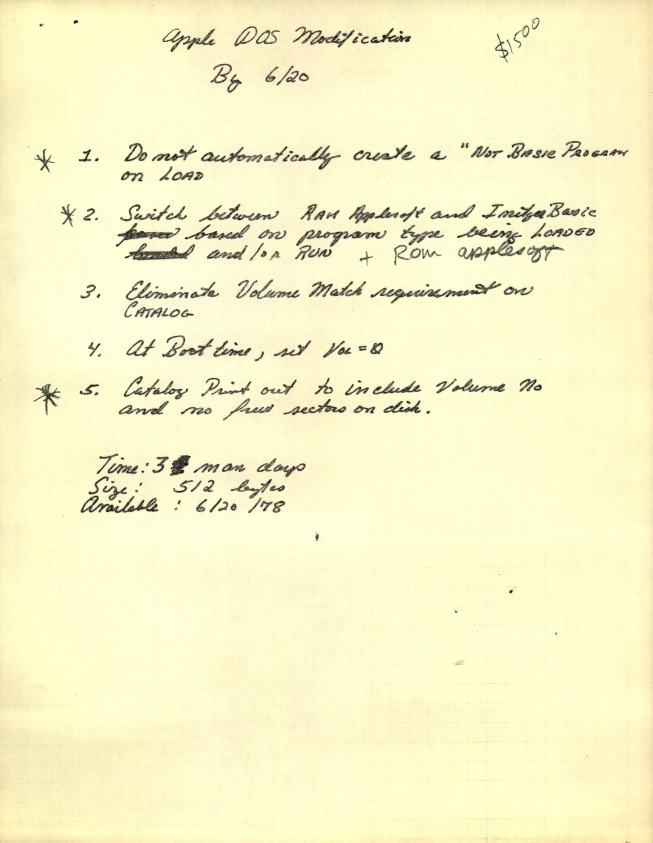 Apple DOS Modification
$1500
By 6/20
* 1. Do not automatically create a "NOT BASIC PROGRAM
on LOAD
* 2. Switch between RAM Applesoft and Integer Basic
based on program type being LOADED
and/or RUN + Rom applesoft
3. Eliminate Volume Match requirement on
CATALOG
4. At Boot time, set Vol = 0
* 5. Catalog Print out to include Volume No
and no free sectors on disk.
Time: 3 man days
Size: 512 bytes
Available : 6/20/78